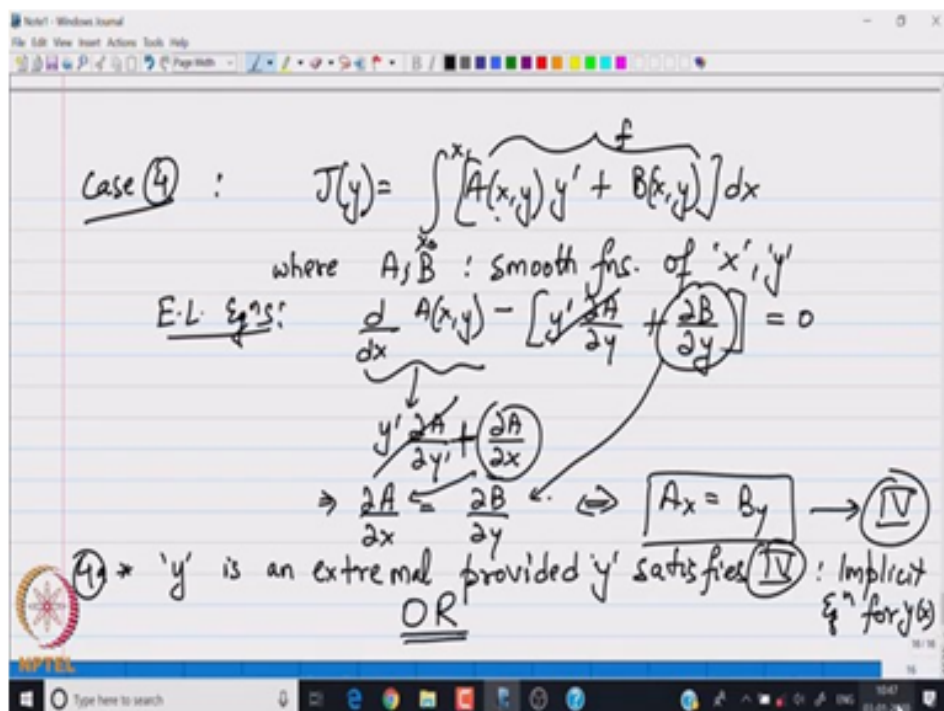 Note1 - Windows Journal
File Edit View Insert Actions Tools Help
Page Width
f
Case ④ : J(y) = ∫_{x₀}^{x₁} [A(x,y) y' + B(x,y)] dx
where A, B : smooth fns. of 'x', 'y'
E.L. Eqⁿs: d/dx A(x,y) − [y' ∂A/∂y + ∂B/∂y] = 0
y' ∂A/∂y' + ∂A/∂x
⇒ ∂A/∂x = ∂B/∂y ⇔ A_x = B_y → IV
4a * 'y' is an extremal provided 'y' satisfies IV : Implicit
OR Eqⁿ for y(x)
16/16
NPTEL
16
Type here to search
ENG
10:47